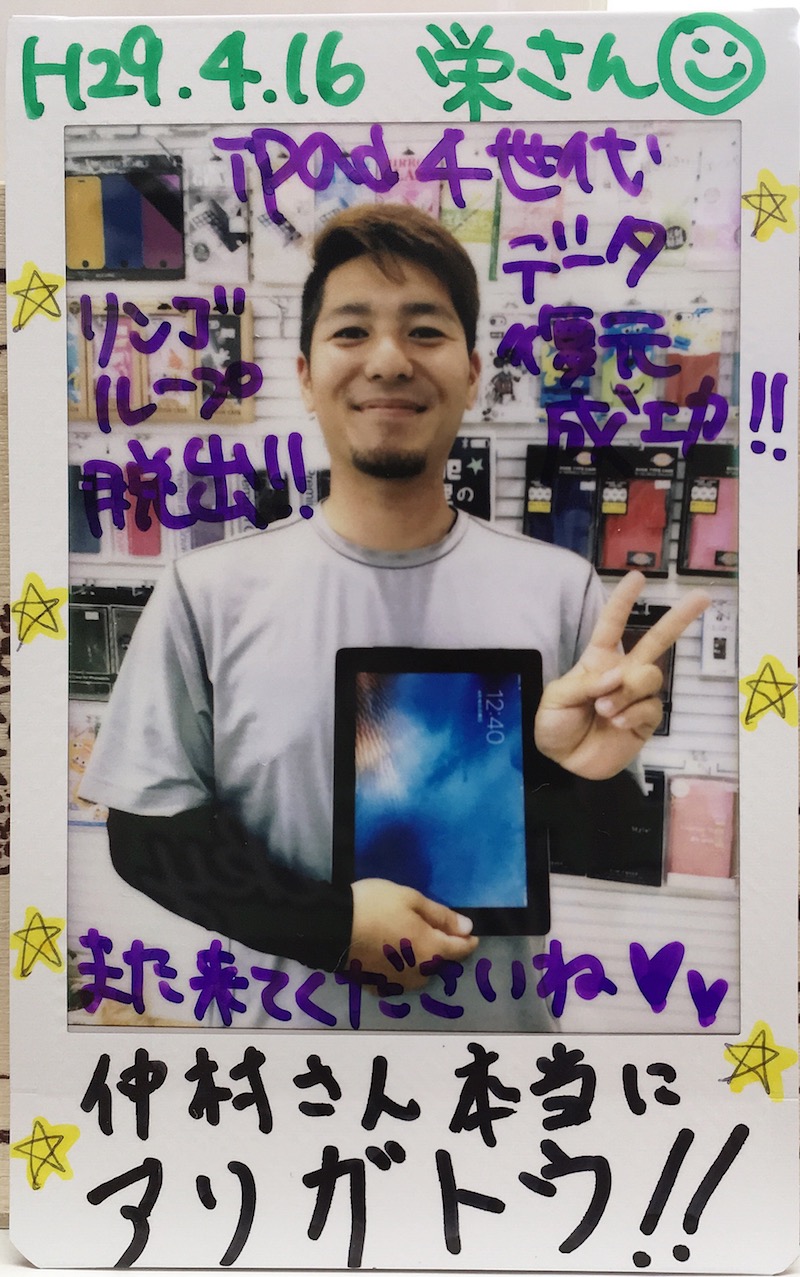 H29.4.16 栄さん
ipad 4世代
データ
復元
成功!!
リンゴ
ループ
脱出!!
12:40
また来てくださいね
仲村さん本当に
アリガトウ!!